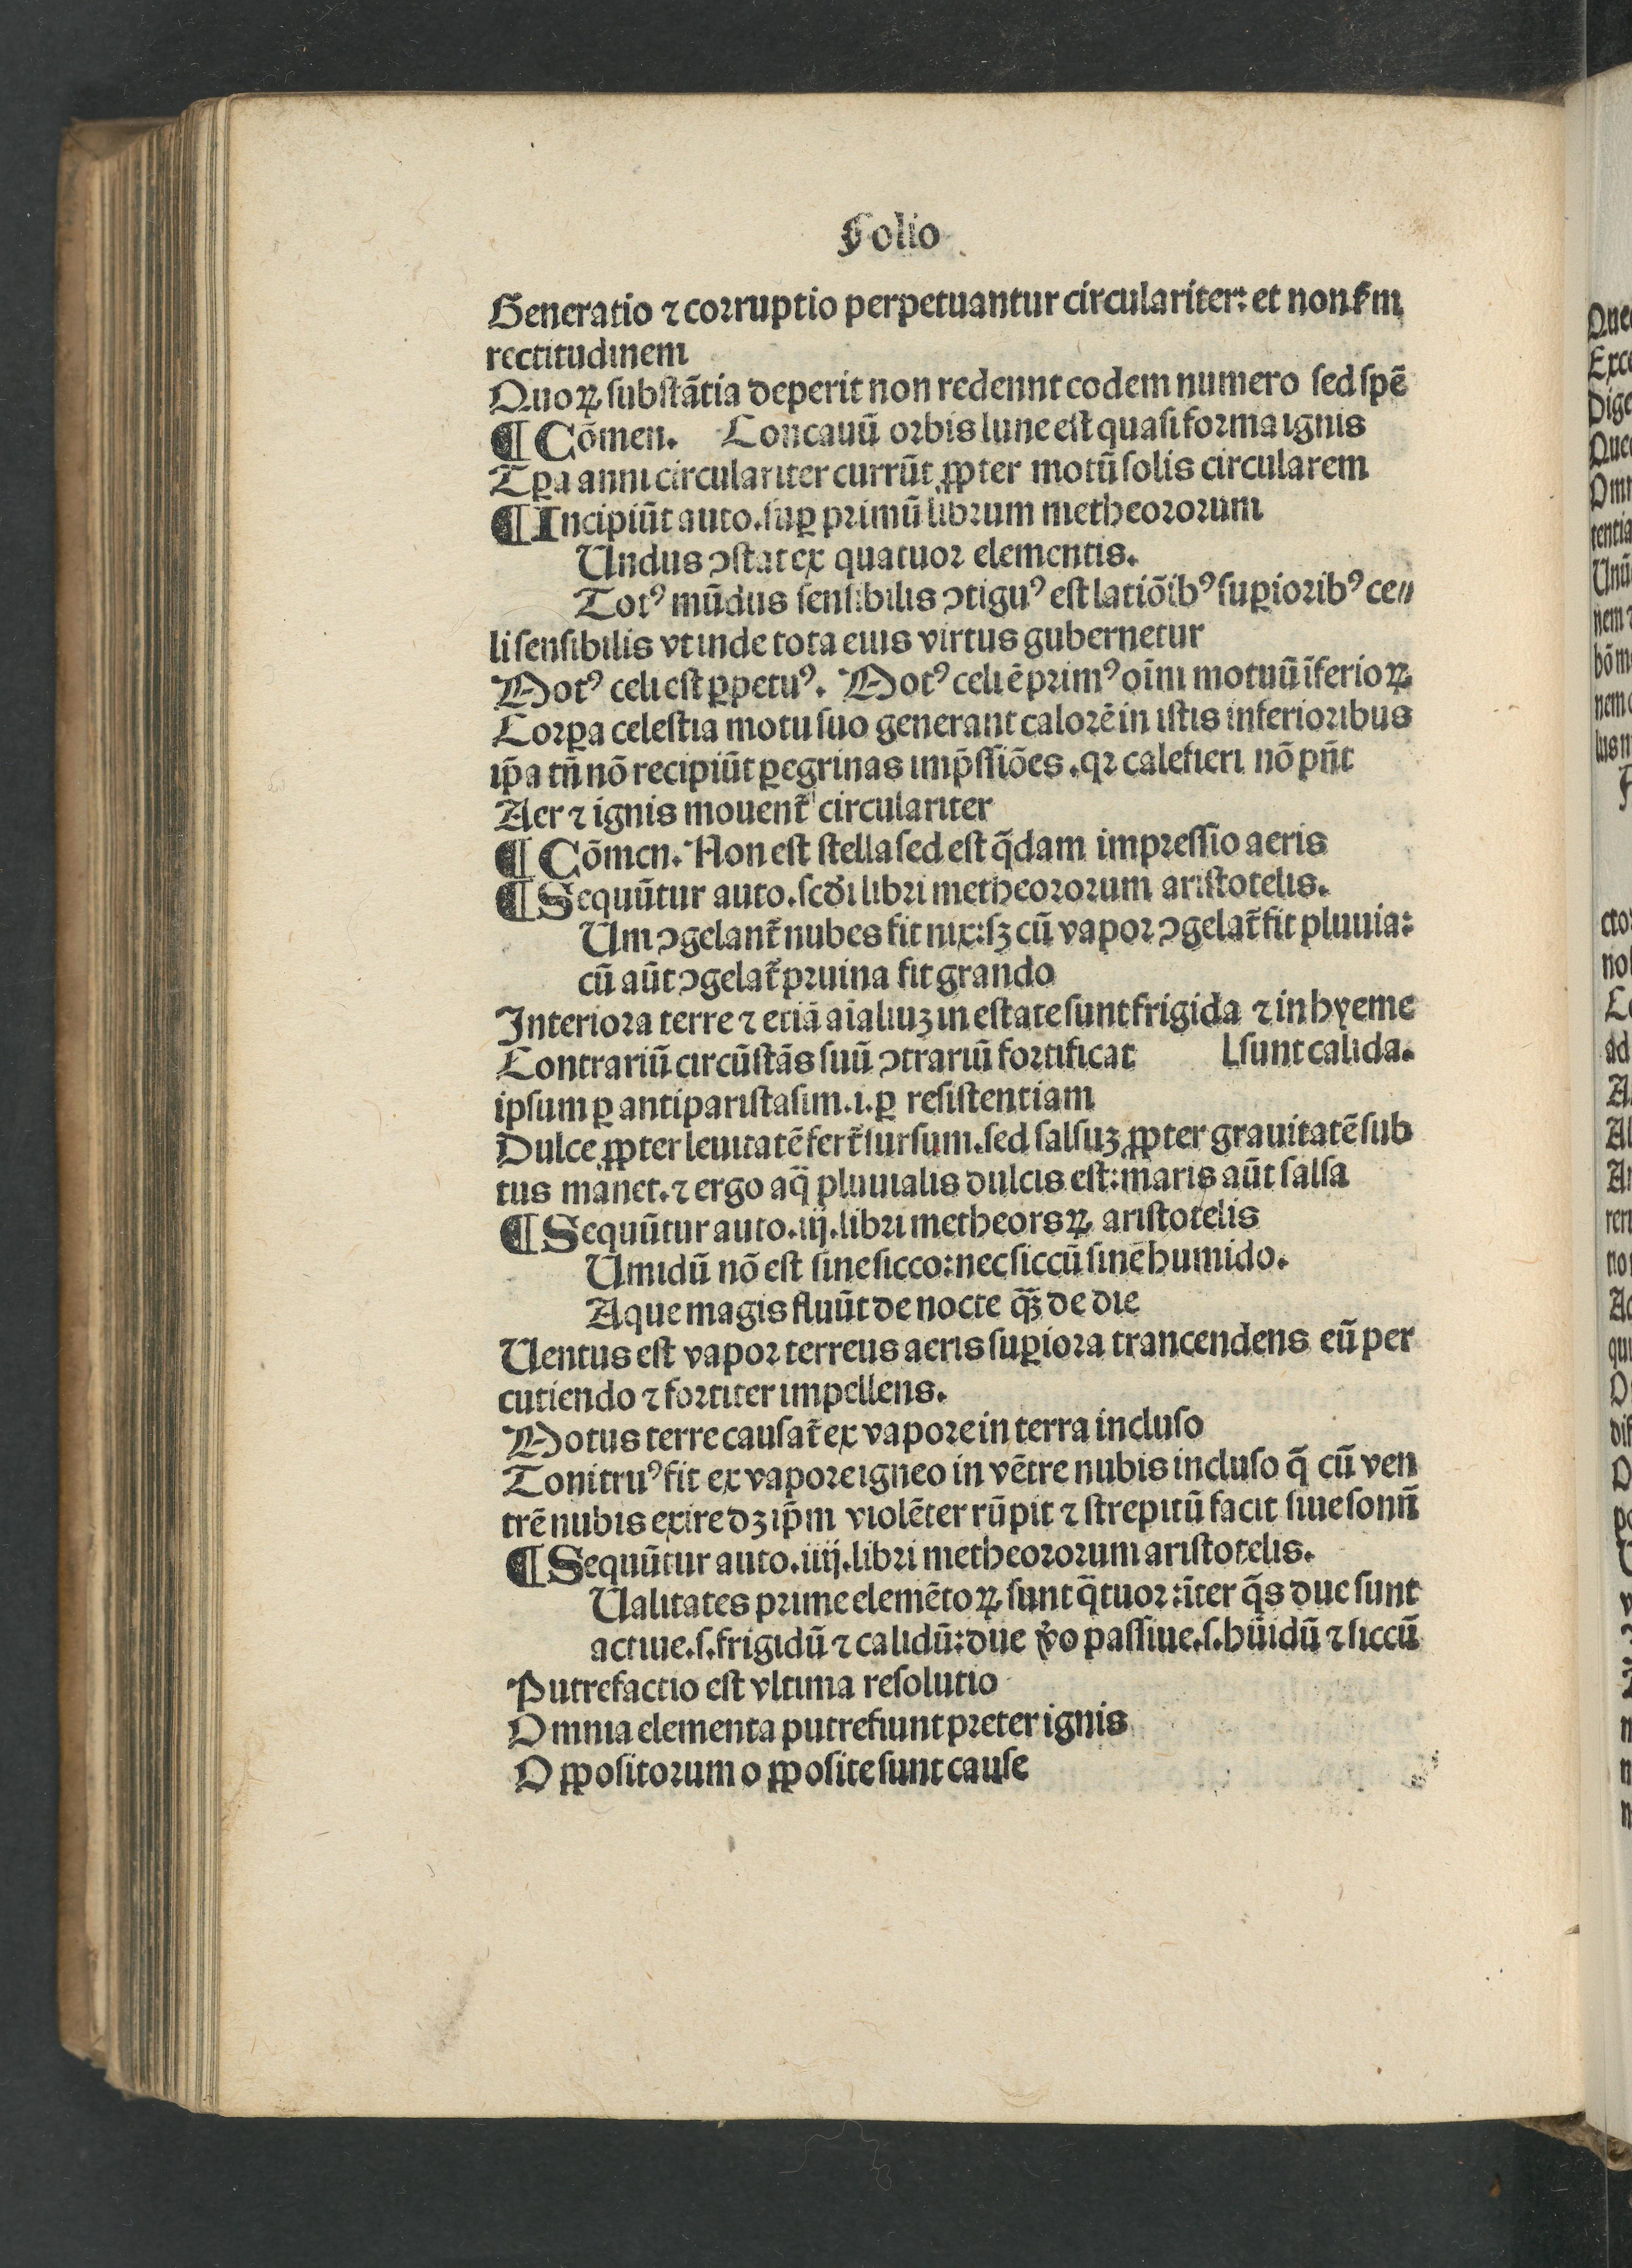 Folio
Generatio ⁊ corruptio perpetuantur circulariter: et non ẜm
rectitudinem
Quoꝝ substātia deperit non redennt codem numero sed spē
¶ Cōmen. Concauū orbis lune est quasi forma ignis
Tꝑa anni circulariter currūt ꝓpter motū solis circularem
¶ Incipiūt auto. suꝑ primū librum metheororum
Undus ↄstat ex quatuor elementis.
Totꝰ mūdus sensibilis ↄtiguꝰ est latiōibꝰ suꝑioribꝰ ce⸗
li sensibilis vt inde tota eius virtus gubernetur
Motꝰ celi est ꝑpetuꝰ. Motꝰ celi ē primꝰ oīm motuū īferioꝝ
Corꝑa celestia motu suo generant calorē in istis inferioribus
ip̄a tn̄ nō recipiūt ꝑegrinas imp̄ssiōes. qꝛ calefieri nō pn̄t
Aer ⁊ ignis mouent̄ circulariter
¶ Cōmen. Non est stella sed est q̄dam impressio aeris
¶ Sequūtur auto. scd̄i libri metheororum aristotelis.
Um ↄgelant̄ nubes fit nix: sꝫ cū vapor ↄgelat̄ fit pluuia:
cū aūt ↄgelat̄ pruina fit grando
Interiora terre ⁊ etiā aialiuꝫ in estate sunt frigida ⁊ in hyeme
Contrariū circūstās suū ↄtrariū fortificat [sunt calida.
ipsum ꝑ antiparistasim .i. ꝑ resistentiam
Dulce ꝓpter leuitatē fert̄ sursum. sed salsuꝫ ꝓpter grauitatē sub
tus manet. ⁊ ergo aq̄ pluuialis dulcis est: maris aūt salsa
¶ Sequūtur auto. iij. libri metheorsꝝ aristotelis
Umidū nō est sine sicco: nec siccū sinē humido.
Aque magis fluūt de nocte q̄ꝫ de die
Uentus est vapor terreus aeris suꝑiora trancendens eū per
cutiendo ⁊ fortiter impellens.
Motus terre causat̄ ex vapore in terra incluso
Tonitruꝰ fit ex vapore igneo in vētre nubis incluso q̄ cū ven
trē nubis exire dꝫ ip̄m violēter rūpit ⁊ strepitū facit siue sonū
¶ Sequūtur auto. iiij. libri metheororum aristotelis.
Ualitates prime elemētoꝝ sunt q̄tuor: īter q̄s due sunt
actiue. s. frigidū ⁊ calidū: due v̄o passiue. s. hūidū ⁊ siccū
Putrefactio est vltima resolutio
Omnia elementa putrefiunt preter ignis
Oꝓpositorum oꝓposite sunt cause